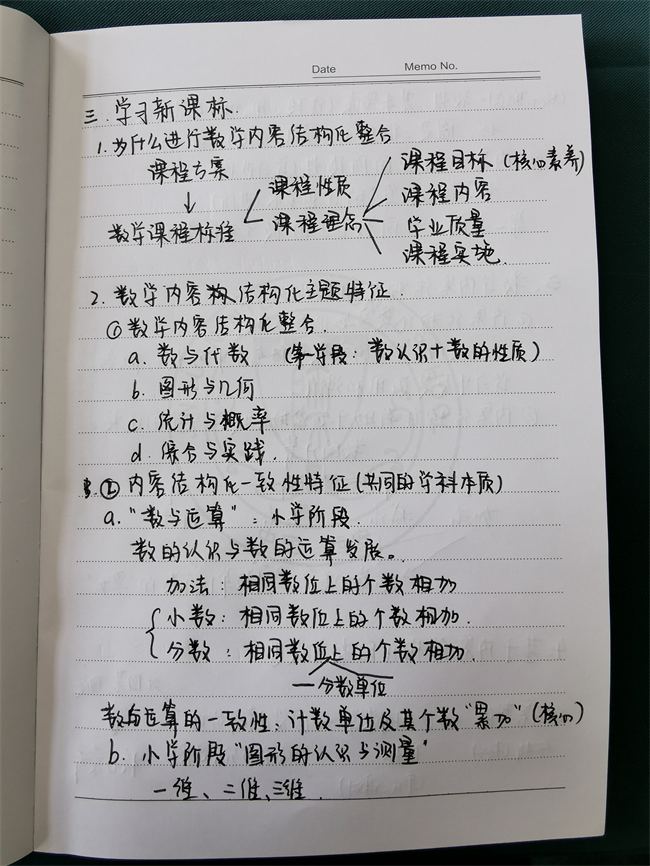 Date Memo No.
三.学习新课标.
1.为什么进行数学内容结构化整合
课程方案
↓
数学课程标准
课程性质
课程理念
课程目标(核心素养)
课程内容
学业质量
课程实施.
2.数学内容结构化主题特征.
①数学内容结构化整合.
a.数与代数 (第一学段:数认识+数的性质)
b.图形与几何
c.统计与概率
d.综合与实践.
②内容结构化一致性特征(共同的学科本质)
a."数与运算":小学阶段.
数的认识与数的运算发展。
加法:相同数位上的个数相加
小数:相同数位上的个数相加.
分数:相同数位上的个数相加.
一分数单位
数与运算的一致性:计数单位及其个数"累加"(核心)
b.小学阶段"图形的认识与测量"
一维、二维、三维.